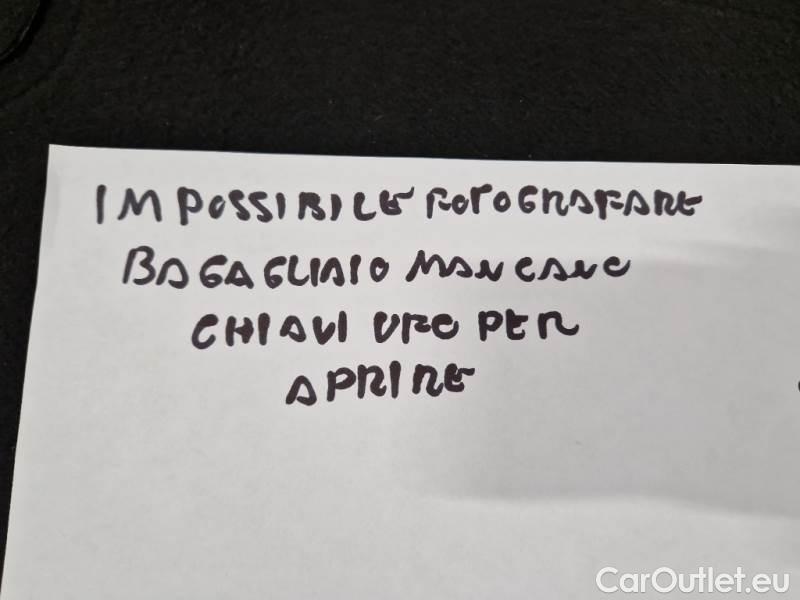 IMPOSSIBILE FOTOGRAFARE
BAGAGLIAIO MANCANO
CHIAVI PER
APRIRE
CarOutlet.eu